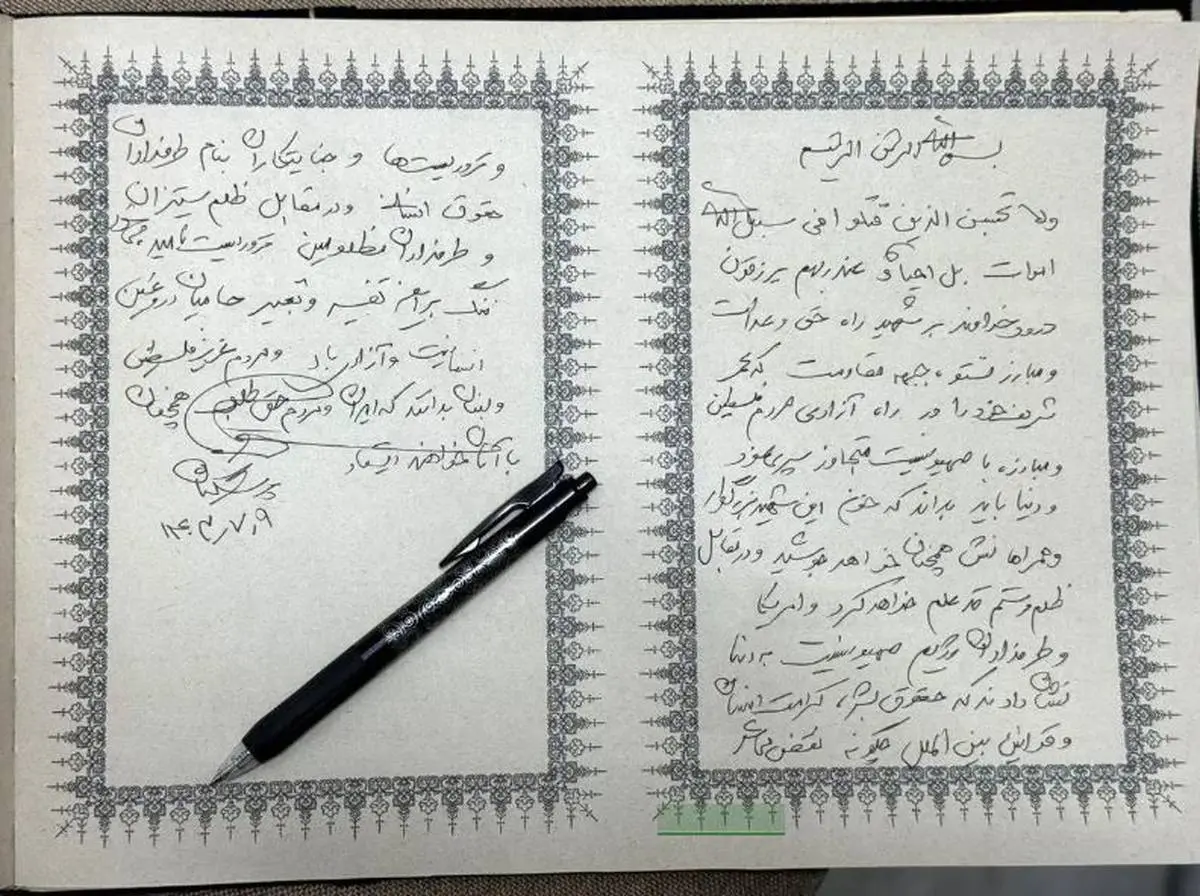 بسم الله الرحمن الرحیم
ولا تحسبن الذین قتلوا فی سبیل الله
اموات بل احیاءٌ عند ربهم یرزقون
درود خداوند بر شهید راه حق و عدالت
و مبارز نستوه جبهه مقاومت که عمر
شریف خود را در راه آزادی مردم فلسطین
و مبارزه با صهیونیست متجاوز سپری نمود
و دنیا باید بداند که خون این شهید بزرگوار
و همراهانش همچنان خواهد جوشید و در مقابل
ظلم و ستم قد علم خواهد کرد و امریکا
و طرفداران رژیم صهیونیست به دنیا
نشان دادند که حقوق بشر، کرامت انسان
و قوانین بین الملل چگونه نقض می‌شود
و تروریست‌ها و جنایتکاران بنام طرفداران
حقوق انسان و در مقابل ظلم ستیزان
و طرفداران مظلومین تروریست نامیده
ننگ بر این تفسیر و تعبیر حامیان دروغین
انسانیت و آزادی باد و مردم عزیز فلسطین
و لبنان بدانند که ایران و مردم حق طلب همچنان
با آنان خواهند ایستاد
پزشکیان
۱۴۰۳٫۷٫۹